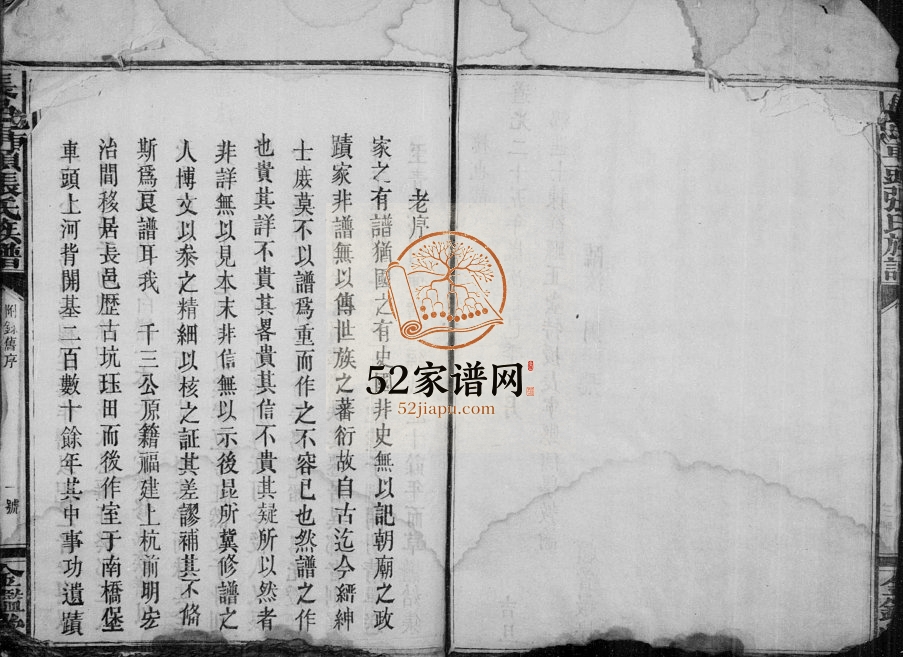 老序
家之有譜猶國之有史非史無以記朝廟之政
蹟家非譜無以傳世族之蕃衍故自古迄今縉紳
士庻莫不以譜爲重而作之不容已也然譜之作
也貴其詳不貴其畧貴其信不貴其疑所以然者
非詳無以見本末非信無以示後昆所冀修譜之
人博文以叅之精細以核之証其差謬補其不俻
斯爲艮譜耳我 千三公原籍福建上杭前明宏
治間移居長邑歷古坑珏田而後作室于南橋堡
車頭上河背開基二百數十餘年其中事功遺蹟
張氏族譜
附錄舊序
一號
52家谱网
52jiapu.com